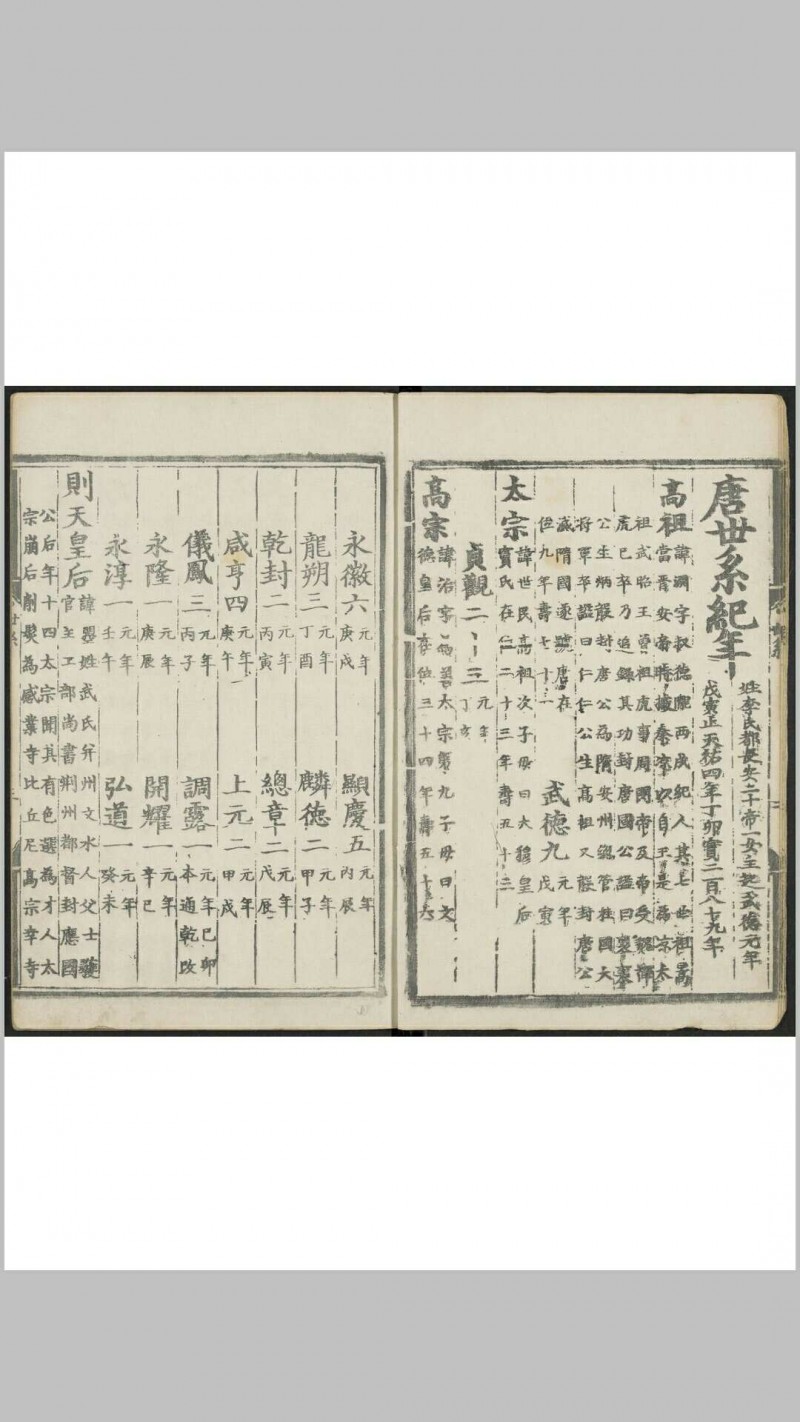 唐世系紀年
姓李氏都長安二十帝一女主起武德元年
戊寅正天祐四年丁卯實二百八十九年
高祖
諱淵字叔德隴西成紀人其七世祖暠
當晉安帝時據秦涼以自王是為涼太
祖武昭王曾祖虎事周閔帝及帝受魏禪
虎已卒乃追錄其功封唐國公諡曰襄襄
公生炳襲封唐公為隋安州緫管柱國大
將軍卒諡曰仁仁公生高祖又襲封唐公
滅隋國遂號唐在
位九年壽七十一
武德九
元年
戊寅
太宗
諱世民高祖次子母曰大穆皇后
竇氏在位二十三年壽五十三
貞觀二十三
元年
丁亥
高宗
諱治字為善太宗第九子母曰文
德皇后在位三十四年壽五十六
永徽六
元年
庚戌
顯慶五
元年
丙辰
龍朔三
元年
丁酉
麟德二
元年
甲子
乾封二
元年
丙寅
總章二
元年
戊辰
咸亨四
元年
庚午
上元二
元年
甲戌
儀鳳三
元年
丙子
調露一
元年己卯
本通乾改
永隆一
元年
庚辰
開耀一
元年
辛巳
永淳一
元年
壬午
弘道一
元年
癸未
則天皇后
諱曌姓武氏并州文水人父士彠
官至工部尚書荆州都督封應國
公后年十四太宗聞其有色選為才人太
宗崩后削髮為感業寺比丘尼高宗幸寺